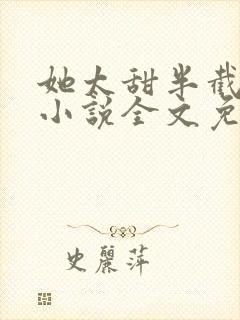 她太甜半截
小說全文免
史麗萍